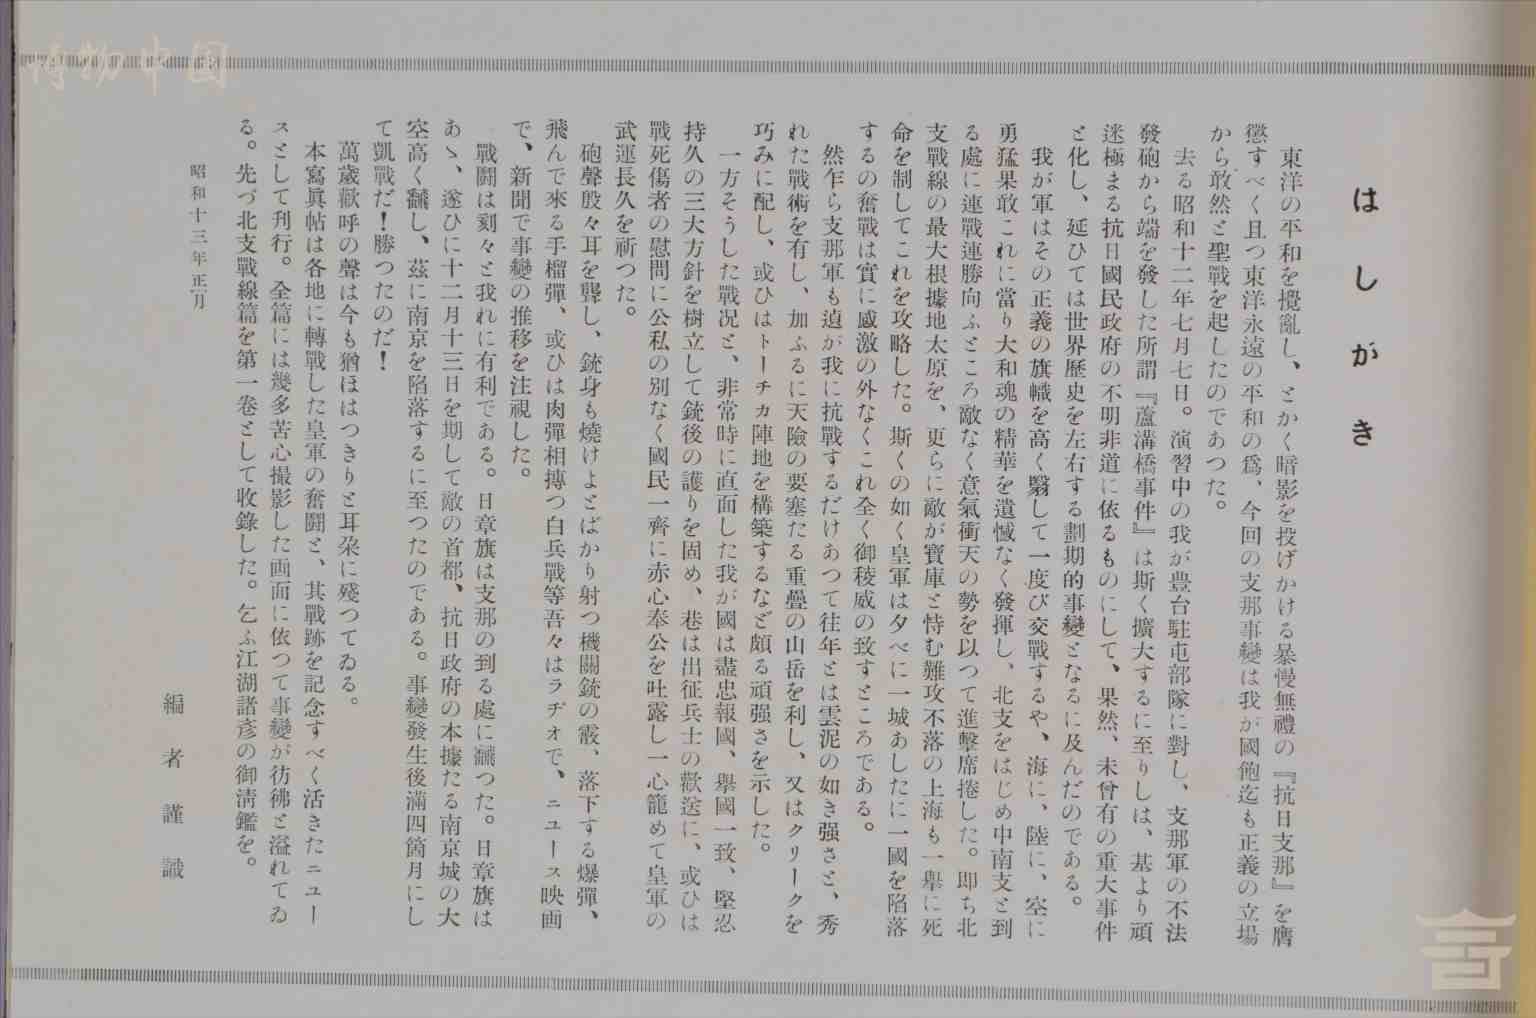 はしがき
東洋の平和を攪亂し、とかく暗影を投げかける暴慢無禮の『抗日支那』を膺
懲すべく且つ東洋永遠の平和の爲、今回の支那事變は我が國飽迄も正義の立場
から敢然と聖戰を起したのであつた。
去る昭和十二年七月七日。演習中の我が豊台駐屯部隊に對し、支那軍の不法
發砲から端を發した所謂『蘆溝橋事件』は斯く擴大するに至りしは、基より頑
迷極まる抗日國民政府の不明非道に依るものにして、果然、未曾有の重大事件
と化し、延ひては世界歷史を左右する劃期的事變となるに及んだのである。
我が軍はその正義の旗幟を高く翳して一度び交戰するや、海に、陸に、空に
勇猛果敢これに當り大和魂の精華を遺憾なく發揮し、北支をはじめ中南支と到
る處に連戰連勝向ふところ敵なく意氣衝天の勢を以つて進擊席捲した。即ち北
支戰線の最大根據地太原を、更らに敵が寶庫と恃む難攻不落の上海も一擧に死
命を制してこれを攻略した。斯くの如く皇軍は夕べに一城あしたに一國を陷落
するの奮戰は實に感激の外なくこれ全く御稜威の致すところである。
然乍ら支那軍も遉が我に抗戰するだけあつて往年とは雲泥の如き强さと、秀
れた戰術を有し、加ふるに天險の要塞たる重疊の山岳を利し、又はクリークを
巧みに配し、或ひはトーチカ陣地を構築するなど頗る頑强さを示した。
一方そうした戰況と、非常時に直面した我が國は盡忠報國、擧國一致、堅忍
持久の三大方針を樹立して銃後の護りを固め、巷は出征兵士の歡送に、或ひは
戰死傷者の慰問に公私の別なく國民一齊に赤心奉公を吐露し一心籠めて皇軍の
武運長久を祈つた。
砲聲殷々耳を聾し、銃身も燒けよとばかり射つ機關銃の霰、落下する爆彈、
飛んで來る手榴彈、或ひは肉彈相搏つ白兵戰等吾々はラヂオで、ニュース映画
で、新聞で事變の推移を注視した。
戰鬪は刻々と我れに有利である。日章旗は支那の到る處に飜つた。日章旗は
あゝ、遂ひに十二月十三日を期して敵の首都、抗日政府の本據たる南京城の大
空高く飜し、茲に南京を陷落するに至つたのである。事變發生後滿四箇月にし
て凱戰だ！勝つたのだ！
萬歲歡呼の聲は今も猶ほはつきりと耳朶に殘つてゐる。
本寫眞帖は各地に轉戰した皇軍の奮鬪と、其戰跡を記念すべく活きたニュー
スとして刊行。全篇には幾多苦心撮影した画面に依つて事變が彷彿と溢れてゐ
る。先づ北支戰線篇を第一卷として收錄した。乞ふ江湖諸彥の御淸鑑を。
昭和十三年正月
編者謹識
博物中国